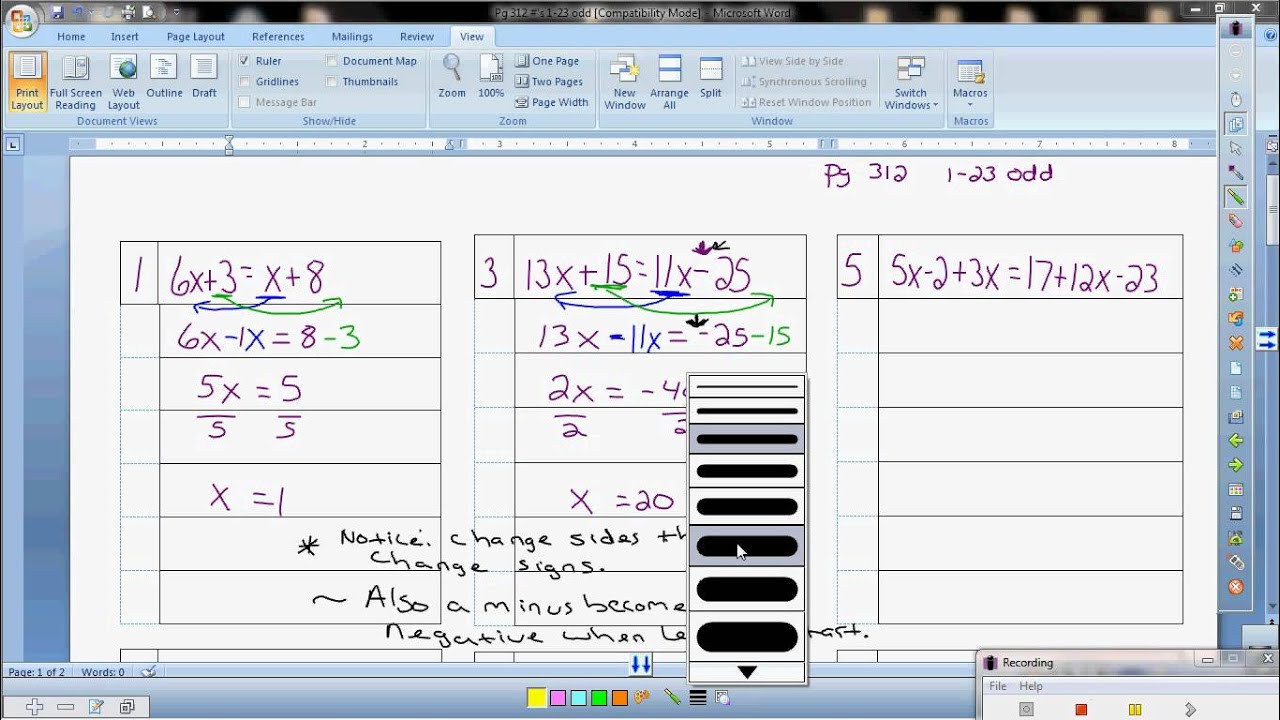 Pg 312 #'s 1-23 odd [Compatibility Mode] - Microsoft Word
Home Insert Page Layout References Mailings Review View
Print Layout
Full Screen Reading
Web Layout
Outline
Draft
Document Views
Ruler
Gridlines
Message Bar
Document Map
Thumbnails
Show/Hide
Zoom
100%
One Page
Two Pages
Page Width
Zoom
New Window
Arrange All
Split
View Side by Side
Synchronous Scrolling
Reset Window Position
Switch Windows
Window
Macros
Macros
2 3 4 5 6 7 8
Pg 312 1-23 odd
1 6x+3=x+8
6x-1x=8-3
5x=5
5 5
x=1
3 13x+15=11x-25
13x-11x=-25-15
2x=-4
2 2
x=20
5 5x-2+3x=17+12x-23
* Notice: change sides
change signs.
~ Also a minus
negative when
Page: 1 of 2 Words: 0
Recording
File Help